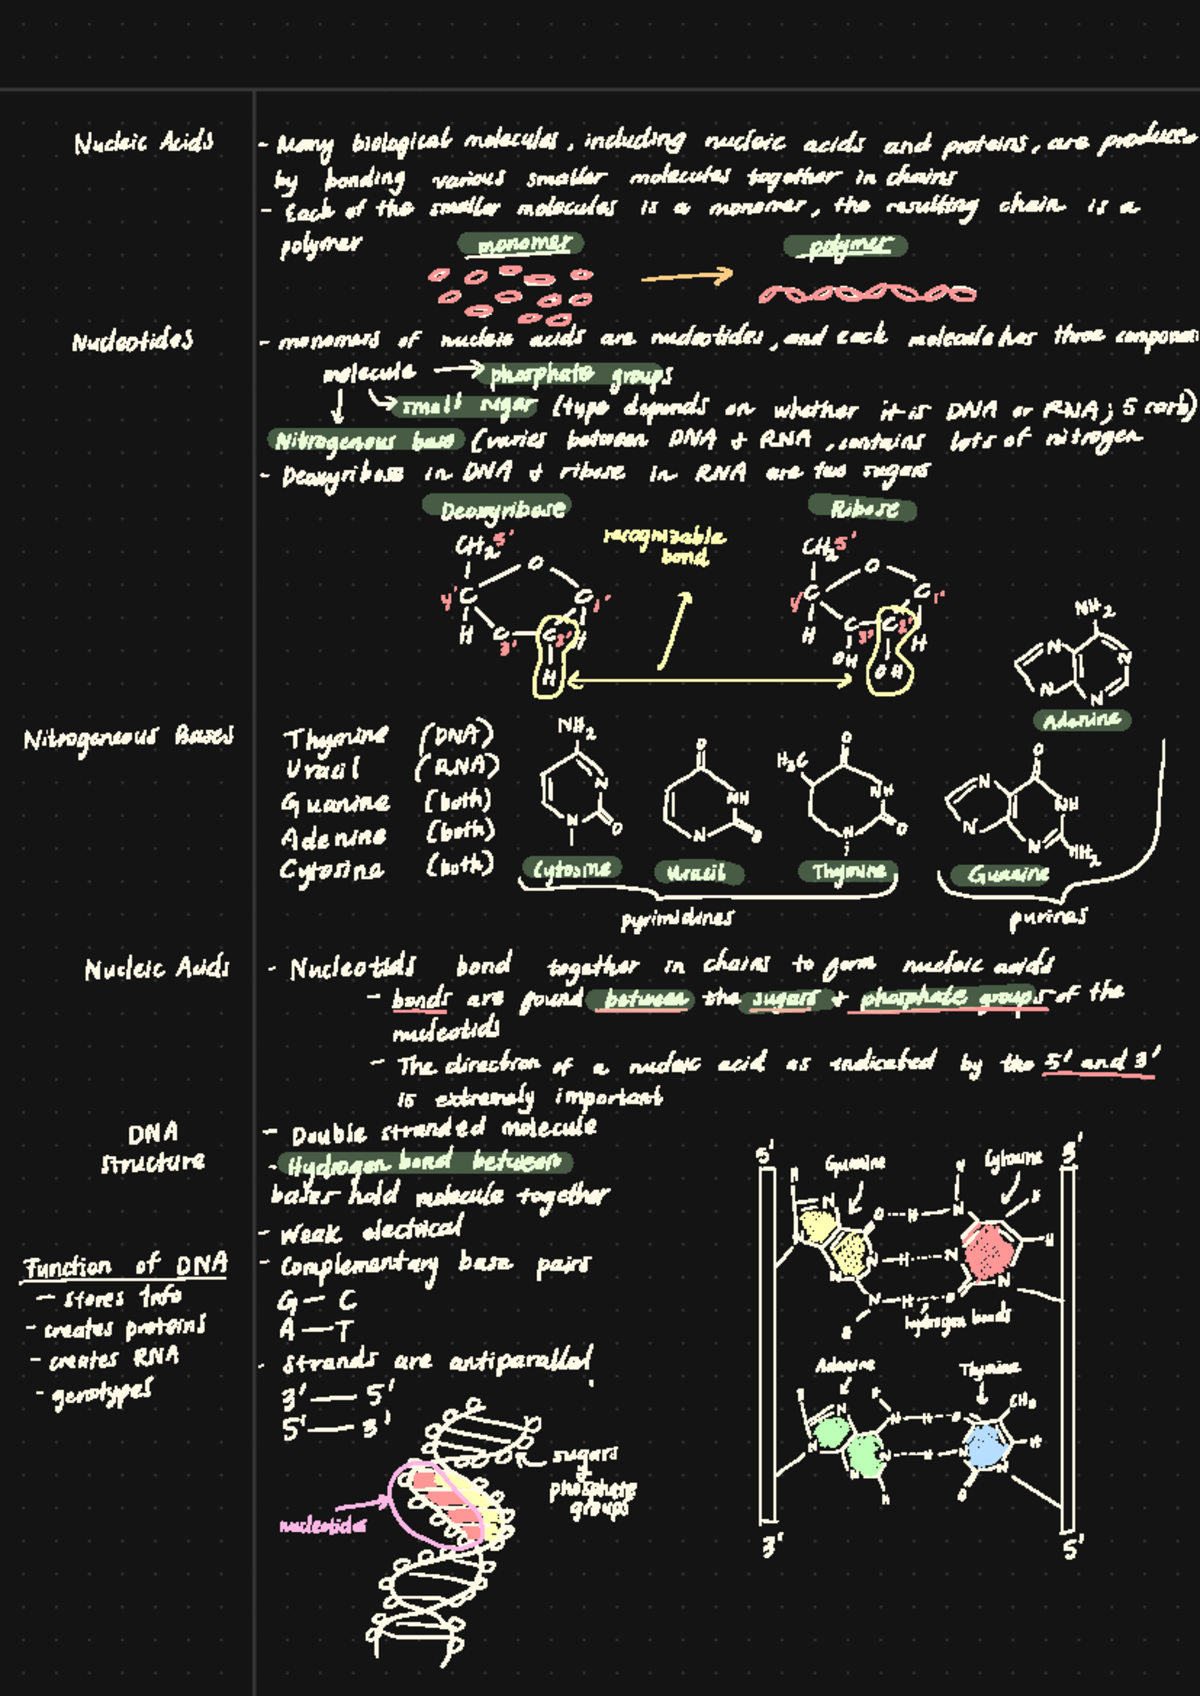 Nucleic Acids
- Many biological molecules, including nucleic acids and proteins, are produce
by bonding various smaller molecules together in chains
- Each of the smaller molecules is a monomer, the resulting chain is a
polymer
monomer
polymer
Nucleotides
- monomers of nucleic acids are nucleotides, and each molecule has three componen
molecule → phosphate groups
small sugar (type depends on whether it is DNA or RNA; 5 carb)
Nitrogenous base (varies between DNA + RNA, contains lots of nitrogen
- Deoxyribose in DNA + ribose in RNA are two sugars
Deoxyribose
Ribose
recognizable
bond
CH2 5'
O
4' C
C 1'
H
C 3'
C 2'
H
H
CH2 5'
O
4' C
C 1'
H
C 3'
C 2'
H
OH
OH
NH2
N
N
N
N
Adenine
Nitrogeneous Bases
Thymine (DNA)
Uracil (RNA)
Guanine (both)
Adenine (both)
Cytosine (both)
NH2
N
N
O
Cytosine
O
NH
N
O
Uracil
O
H3C
NH
N
O
Thymine
O
N
NH
N
N
NH2
Guanine
pyrimidines
purines
Nucleic Acids
- Nucleotids bond together in chains to form nucleic acids
- bonds are found between the sugars + phosphate groups of the
nucleotids
- The direction of a nucleic acid as indicated by the 5' and 3'
is extremely important
DNA
structure
- Double stranded molecule
- Hydrogen bond between
bases hold molecule together
- Weak electrical
- Complementary base pairs
G — C
A — T
- strands are antiparallel
3' — 5'
5' — 3'
Function of DNA
- stores info
- creates proteins
- creates RNA
- genotypes
sugars
+
phosphate
groups
nucleotides
5'
3'
Guanine
Cytosine
hydrogen bonds
Adenine
Thymine
CH3
3'
5'